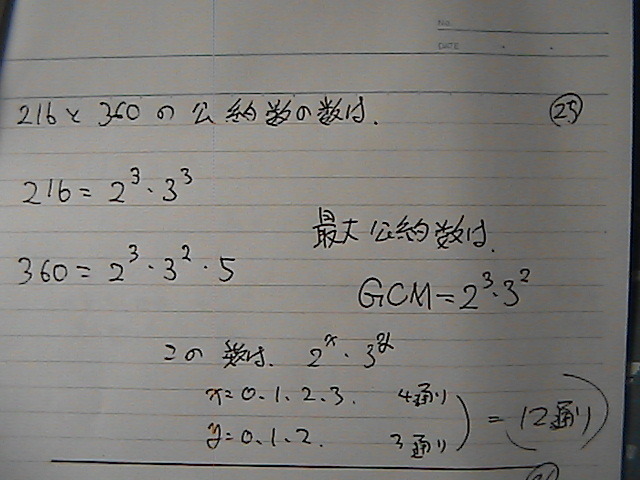 No.
DATE
216と360の公約数の数は. ㉕
216 = 2³·3³
最大公約数は.
360 = 2³·3²·5
GCM = 2³·3²
この数は. 2ˣ·3ʸ
x = 0.1.2.3. 4通り
y = 0.1.2. 3通り
= 12通り